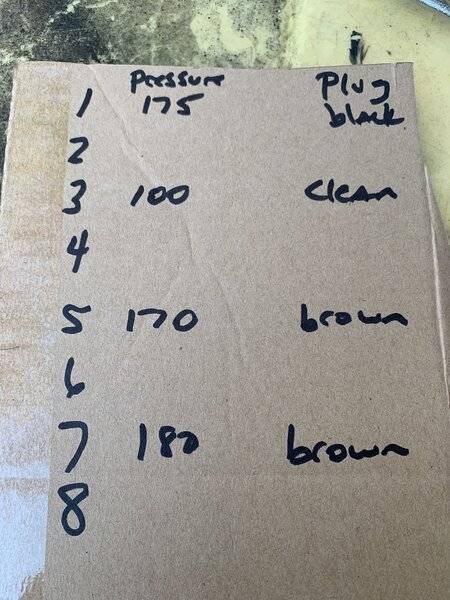 Pressure Plug
1 175 black
2
3 100 clean
4
5 170 brown
6
7 180 brown
8